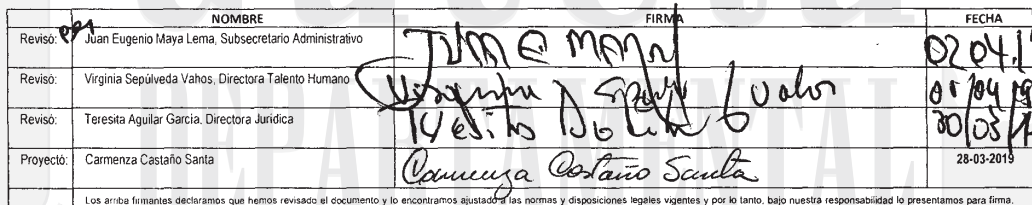 NOMBRE FIRMA FECHA
Revisó: Juan Eugenio Maya Lema, Subsecretario Administrativo 02 04.1
Revisó: Virginia Sepúlveda Vahos, Directora Talento Humano Virginia Sepúlveda Vahos 01/04/19
Revisó: Teresita Aguilar García. Directora Jurídica 30/03/1
Proyectó: Carmenza Castaño Santa Carmenza Castaño Santa 28-03-2019
Los arriba firmantes declaramos que hemos revisado el documento y lo encontramos ajustado a las normas y disposiciones legales vigentes y por lo tanto, bajo nuestra responsabilidad lo presentamos para firma.
DEPARTAMENTAL